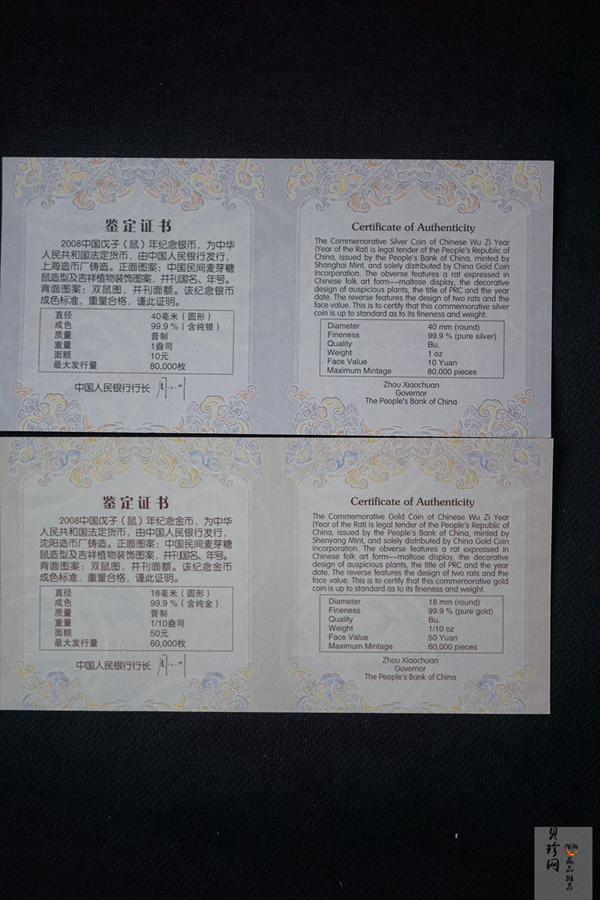 鉴定证书
2008中国戊子（鼠）年纪念银币，为中华
人民共和国法定货币，由中国人民银行发行，
上海造币厂铸造。正面图案：中国民间麦芽糖
鼠造型及吉祥植物装饰图案，并刊国名、年号。
背面图案：双鼠图，并刊面额。该纪念银币
成色标准，重量合格，谨此证明。
直径 40毫米（圆形）
成色 99.9％（含纯银）
质量 普制
重量 1盎司
面额 10元
最大发行量 80,000枚
中国人民银行行长
Certificate of Authenticity
The Commemorative Silver Coin of Chinese Wu Zi Year
(Year of the Rat) is legal tender of the People's Republic of
China, issued by the People's Bank of China, minted by
Shanghai Mint, and solely distributed by China Gold Coin
Incorporation. The obverse features a rat expressed in
Chinese folk art form—maltose display, the decorative
design of auspicious plants, the title of PRC and the year
date. The reverse features the design of two rats and the
face value. This is to certify that this commemorative silver
coin is up to standard as to its fineness and weight.
Diameter 40 mm (round)
Fineness 99.9 % (pure silver)
Quality Bu.
Weight 1 oz
Face Value 10 Yuan
Maximum Mintage 80,000 pieces
Zhou Xiaochuan
Governor
The People's Bank of China
鉴定证书
2008中国戊子（鼠）年纪念金币，为中华
人民共和国法定货币，由中国人民银行发行，
沈阳造币厂铸造。正面图案：中国民间麦芽糖
鼠造型及吉祥植物装饰图案，并刊国名、年号。
背面图案：双鼠图，并刊面额。该纪念金币
成色标准，重量合格，谨此证明。
直径 18毫米（圆形）
成色 99.9％（含纯金）
质量 普制
重量 1/10盎司
面额 50元
最大发行量 60,000枚
中国人民银行行长
Certificate of Authenticity
The Commemorative Gold Coin of Chinese Wu Zi Year
(Year of the Rat) is legal tender of the People's Republic of
China, issued by the People's Bank of China, minted by
Shenyang Mint, and solely distributed by China Gold Coin
Incorporation. The obverse features a rat expressed in
Chinese folk art form—maltose display, the decorative
design of auspicious plants, the title of PRC and the year
date. The reverse features the design of two rats and the
face value. This is to certify that this commemorative gold
coin is up to standard as to its fineness and weight.
Diameter 18 mm (round)
Fineness 99.9 % (pure gold)
Quality Bu.
Weight 1/10 oz
Face Value 50 Yuan
Maximum Mintage 60,000 pieces
Zhou Xiaochuan
Governor
The People's Bank of China
贝珍网